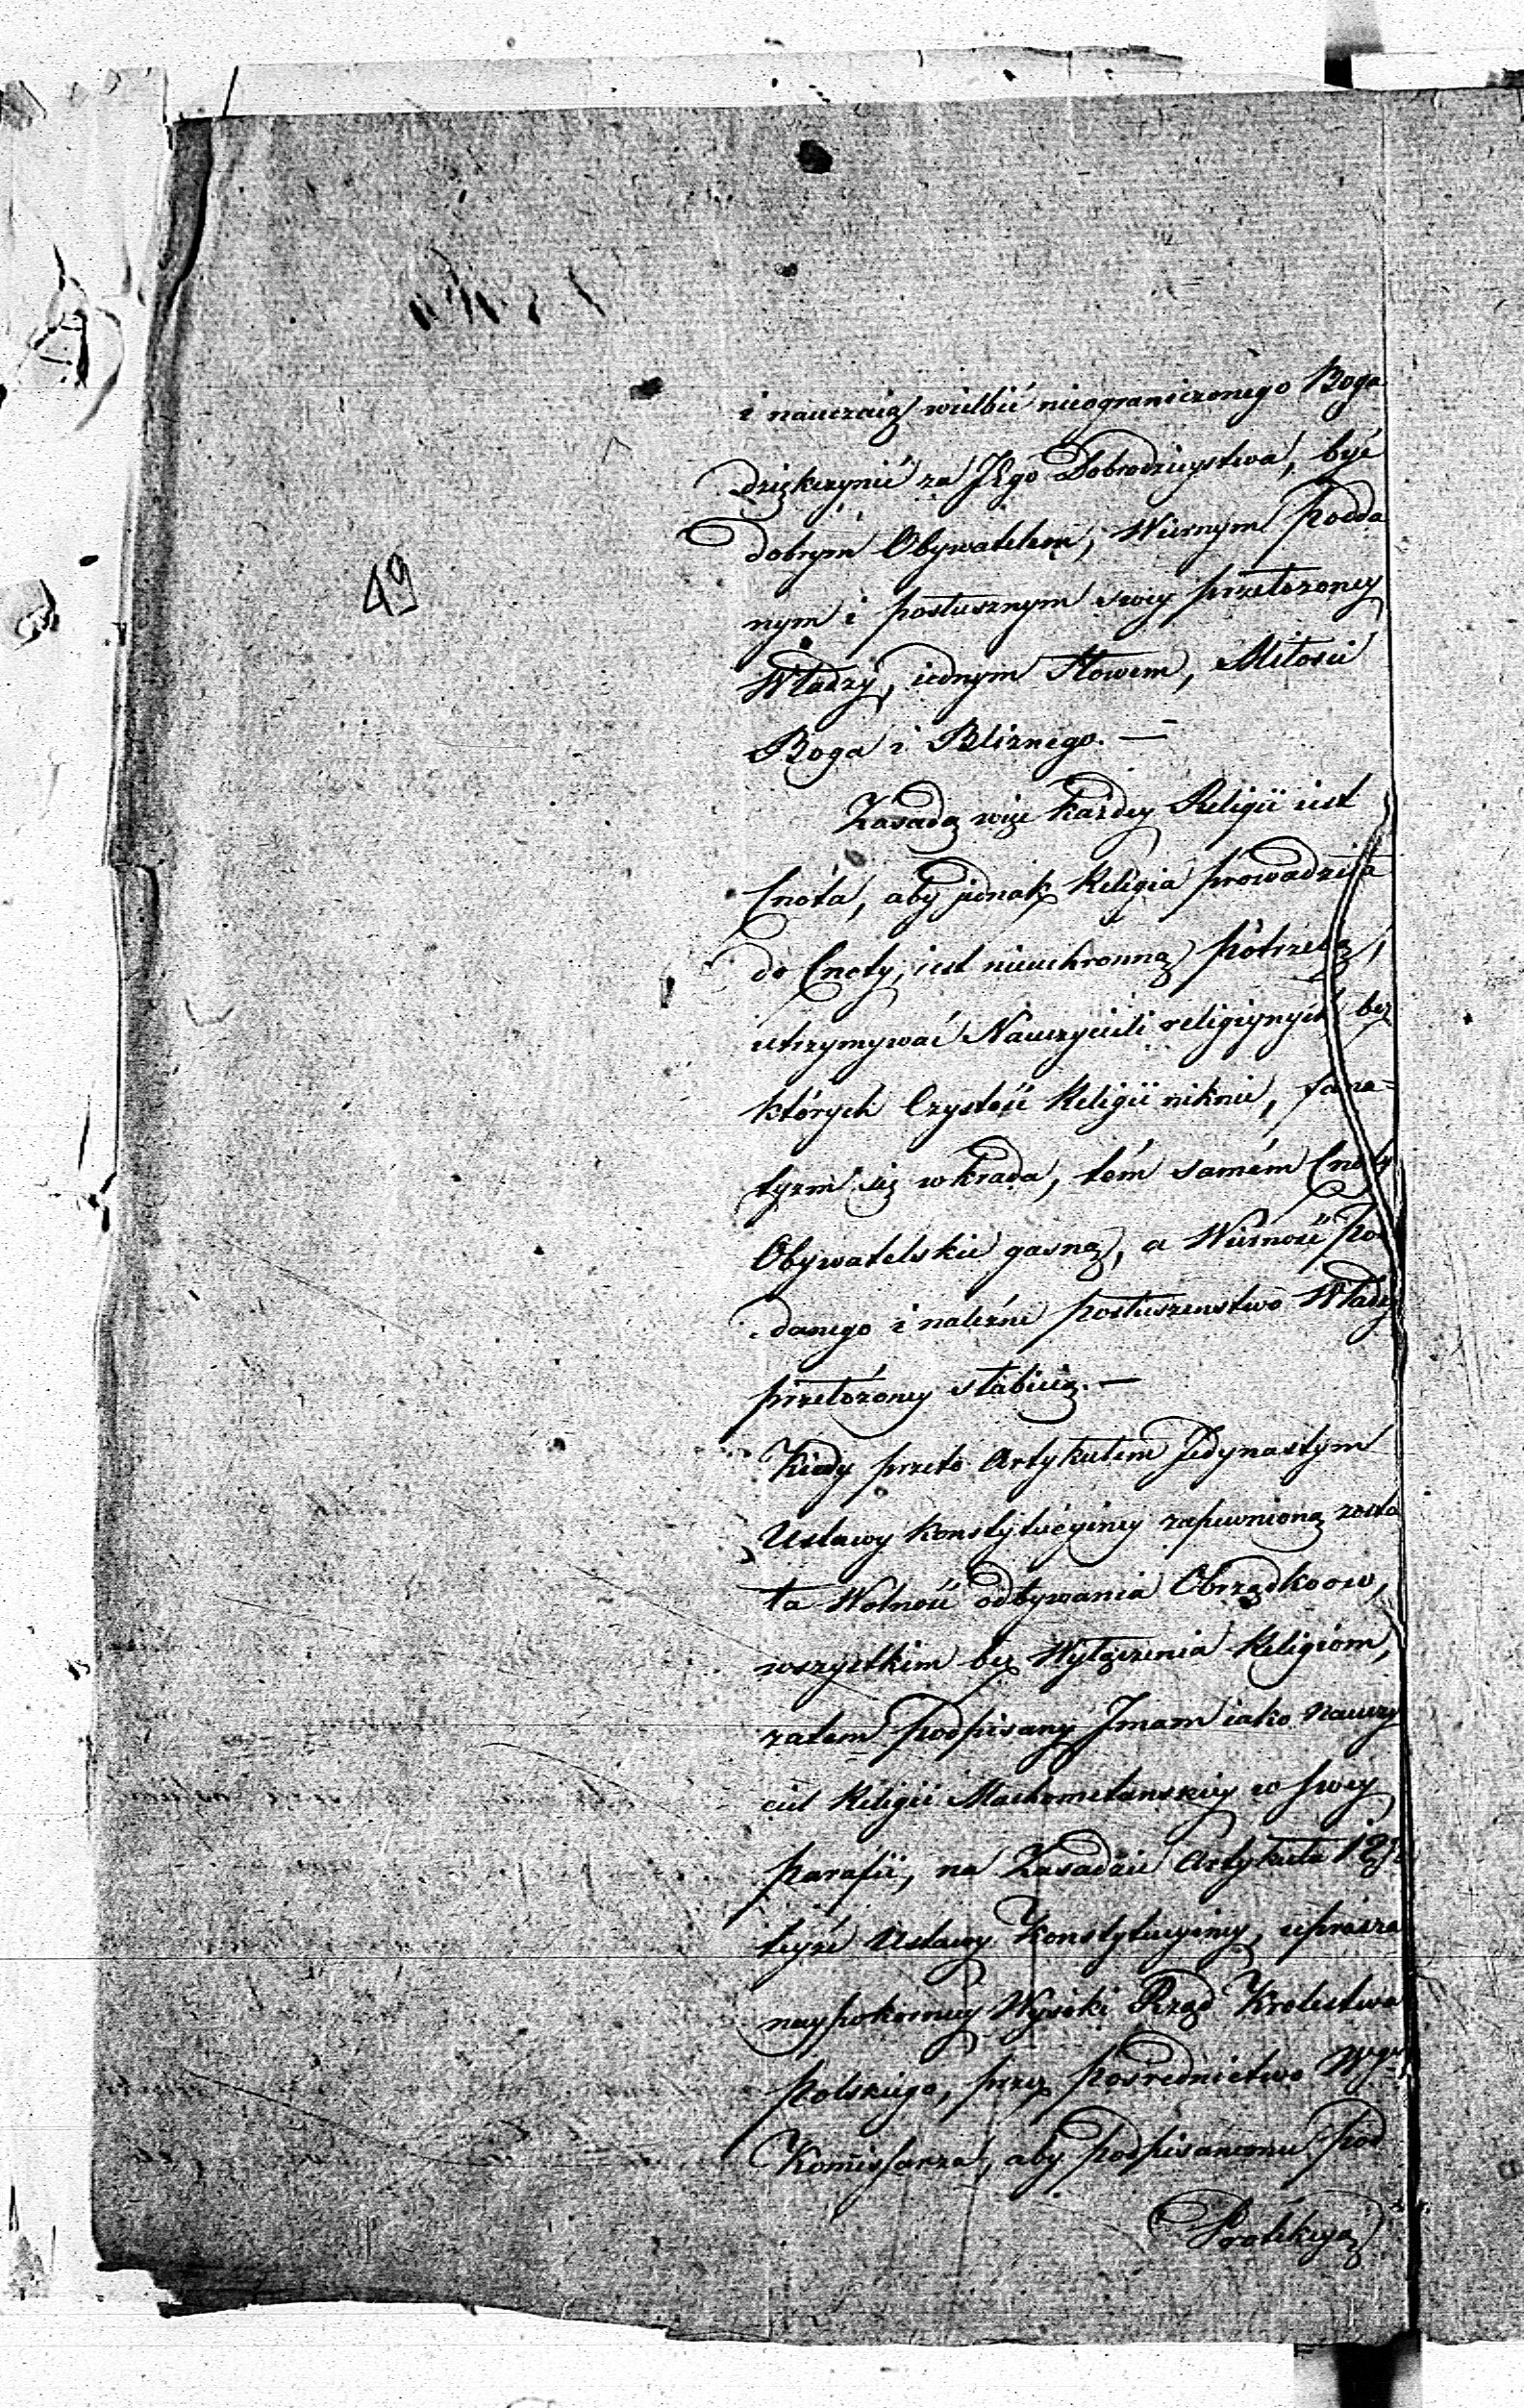 i nauczaią wielbić nieograniczonego Boga
dziękczynić za JEgo Dobrodzieystwa, być
49
dobrym Obywatelem, Wiernym Podda
nym i posłusznym swey przełożoney
Władzy, iednym Słowem, Miłości
Boga i Bliznego. —
Zasadą więc każdey Religii iest
Cnota, aby jednak Religia prowadziła
do Cnoty, iest nieuchronną potrzebą,
utrzymywać Nauczycieli religiynych bez
których Czystość Religii niknie, fana-
tyzm się wkrada, tém samém Cnoty
Obywatelskie gasną, a Wierność Pod
danego i należne posłuszenstwo Władzy
przełożoney słabieią. —
Kiedy przeto Artykułem Jedynastym
Ustawy konstytucyiney zapewnioną zosta
ła Wolność odbywania Obrządkoow,
wszystkim bez Wyłączenia Religiom,
zatem podpisany Jmam iako nauczy
ciel Religii Machometanskiey w swey
parafii, na Zasadzie Artykułu 12go
teyże Ustawy Konstytucyiney, uprasza
naypokorniey Wysoki Rząd Krolestwa
Polskiego, przez posrednictwo WJ
Komissarza, aby podpisanemu pod
Protekcyą